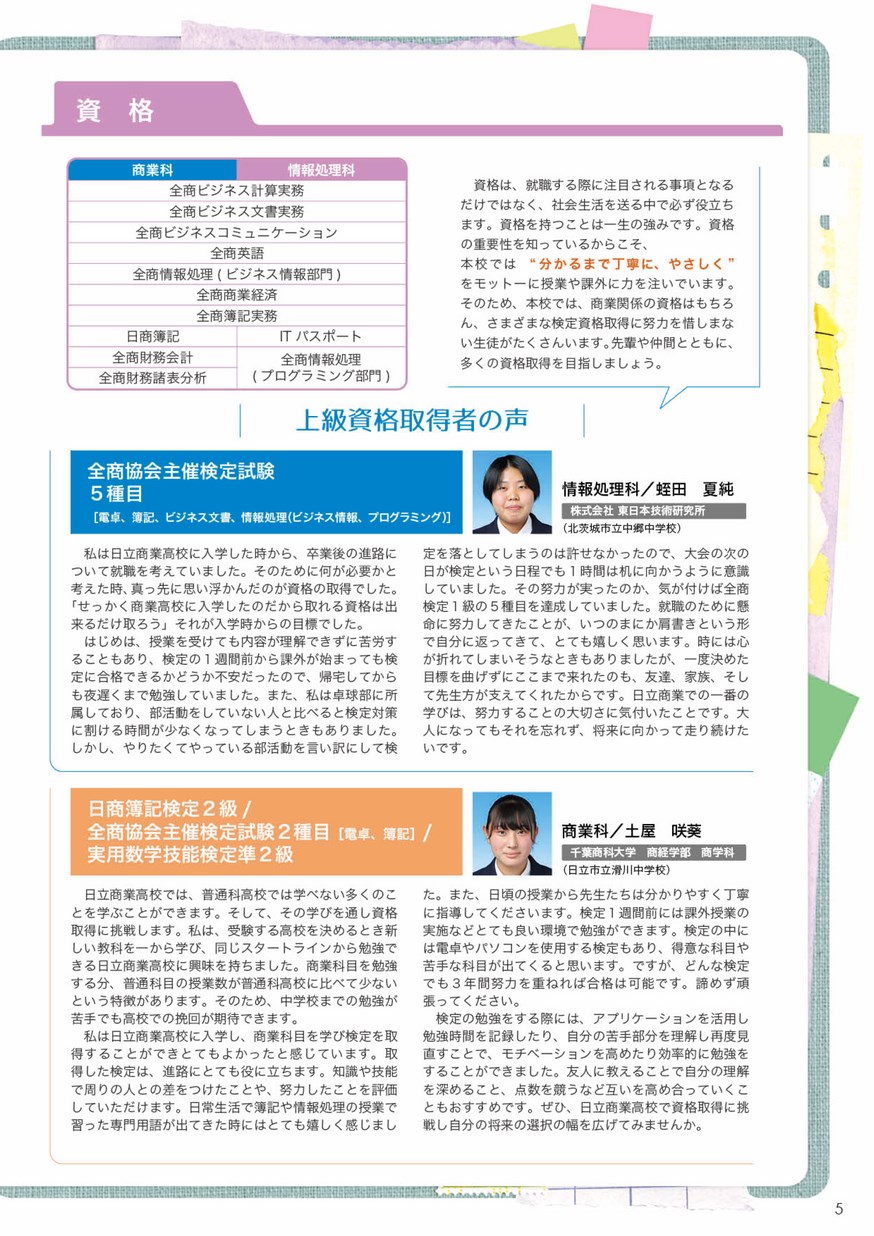 資 格
商業科 情報処理科
全商ビジネス計算実務
全商ビジネス文書実務
全商ビジネスコミュニケーション
全商英語
全商情報処理 ( ビジネス情報部門 )
全商商業経済
全商簿記実務
日商簿記 IT パスポート
全商財務会計 全商情報処理
全商財務諸表分析 ( プログラミング部門 )
資格は、就職する際に注目される事項となる
だけではなく、社会生活を送る中で必ず役立ち
ます。資格を持つことは一生の強みです。資格
の重要性を知っているからこそ、
本校では “分かるまで丁寧に、やさしく”
をモットーに授業や課外に力を注いでいます。
そのため、本校では、商業関係の資格はもちろ
ん、さまざまな検定資格取得に努力を惜しまな
い生徒がたくさんいます。先輩や仲間とともに、
多くの資格取得を目指しましょう。
上級資格取得者の声
全商協会主催検定試験
５種目
［電卓、簿記、ビジネス文書、情報処理(ビジネス情報、プログラミング)］
情報処理科／蛭田 夏純
株式会社 東日本技術研究所
（北茨城市立中郷中学校）
私は日立商業高校に入学した時から、卒業後の進路に
ついて就職を考えていました。そのために何が必要かと
考えた時、真っ先に思い浮かんだのが資格の取得でした。
「せっかく商業高校に入学したのだから取れる資格は出
来るだけ取ろう」それが入学時からの目標でした。
はじめは、授業を受けても内容が理解できずに苦労す
ることもあり、検定の１週間前から課外が始まっても検
定に合格できるかどうか不安だったので、帰宅してから
も夜遅くまで勉強していました。また、私は卓球部に所
属しており、部活動をしていない人と比べると検定対策
に割ける時間が少なくなってしまうときもありました。
しかし、やりたくてやっている部活動を言い訳にして検
定を落としてしまうのは許せなかったので、大会の次の
日が検定という日程でも１時間は机に向かうように意識
していました。その努力が実ったのか、気が付けば全商
検定１級の５種目を達成していました。就職のために懸
命に努力してきたことが、いつのまにか肩書きという形
で自分に返ってきて、とても嬉しく思います。時には心
が折れてしまいそうなときもありましたが、一度決めた
目標を曲げずにここまで来れたのも、友達、家族、そし
て先生方が支えてくれたからです。日立商業での一番の
学びは、努力することの大切さに気付いたことです。大
人になってもそれを忘れず、将来に向かって走り続けた
いです。
日商簿記検定２級 /
全商協会主催検定試験２種目［電卓、簿記］/
実用数学技能検定準２級
商業科／土屋 咲葵
千葉商科大学 商経学部 商学科
（日立市立滑川中学校）
日立商業高校では、普通科高校では学べない多くのこ
とを学ぶことができます。そして、その学びを通し資格
取得に挑戦します。私は、受験する高校を決めるとき新
しい教科を一から学び、同じスタートラインから勉強で
きる日立商業高校に興味を持ちました。商業科目を勉強
する分、普通科目の授業数が普通科高校に比べて少ない
という特徴があります。そのため、中学校までの勉強が
苦手でも高校での挽回が期待できます。
私は日立商業高校に入学し、商業科目を学び検定を取
得することができとてもよかったと感じています。取
得した検定は、進路にとても役に立ちます。知識や技能
で周りの人との差をつけたことや、努力したことを評価
していただけます。日常生活で簿記や情報処理の授業で
習った専門用語が出てきた時にはとても嬉しく感じまし
た。また、日頃の授業から先生たちは分かりやすく丁寧
に指導してくださいます。検定１週間前には課外授業の
実施などとても良い環境で勉強ができます。検定の中に
は電卓やパソコンを使用する検定もあり、得意な科目や
苦手な科目が出てくると思います。ですが、どんな検定
でも３年間努力を重ねれば合格は可能です。諦めず頑
張ってください。
検定の勉強をする際には、アプリケーションを活用し
勉強時間を記録したり、自分の苦手部分を理解し再度見
直すことで、モチベーションを高めたり効率的に勉強を
することができました。友人に教えることで自分の理解
を深めること、点数を競うなど互いを高め合っていくこ
ともおすすめです。ぜひ、日立商業高校で資格取得に挑
戦し自分の将来の選択の幅を広げてみませんか。
5